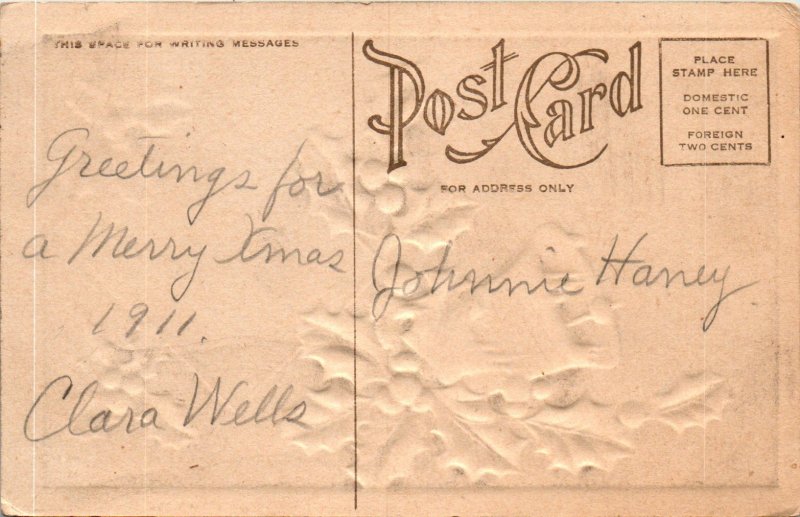 THIS SPACE FOR WRITING MESSAGES
Greetings for
a Merry Xmas
1911.
Clara Wells
Post Card
FOR ADDRESS ONLY
Johnnie Haney
PLACE
STAMP HERE
DOMESTIC
ONE CENT
FOREIGN
TWO CENTS